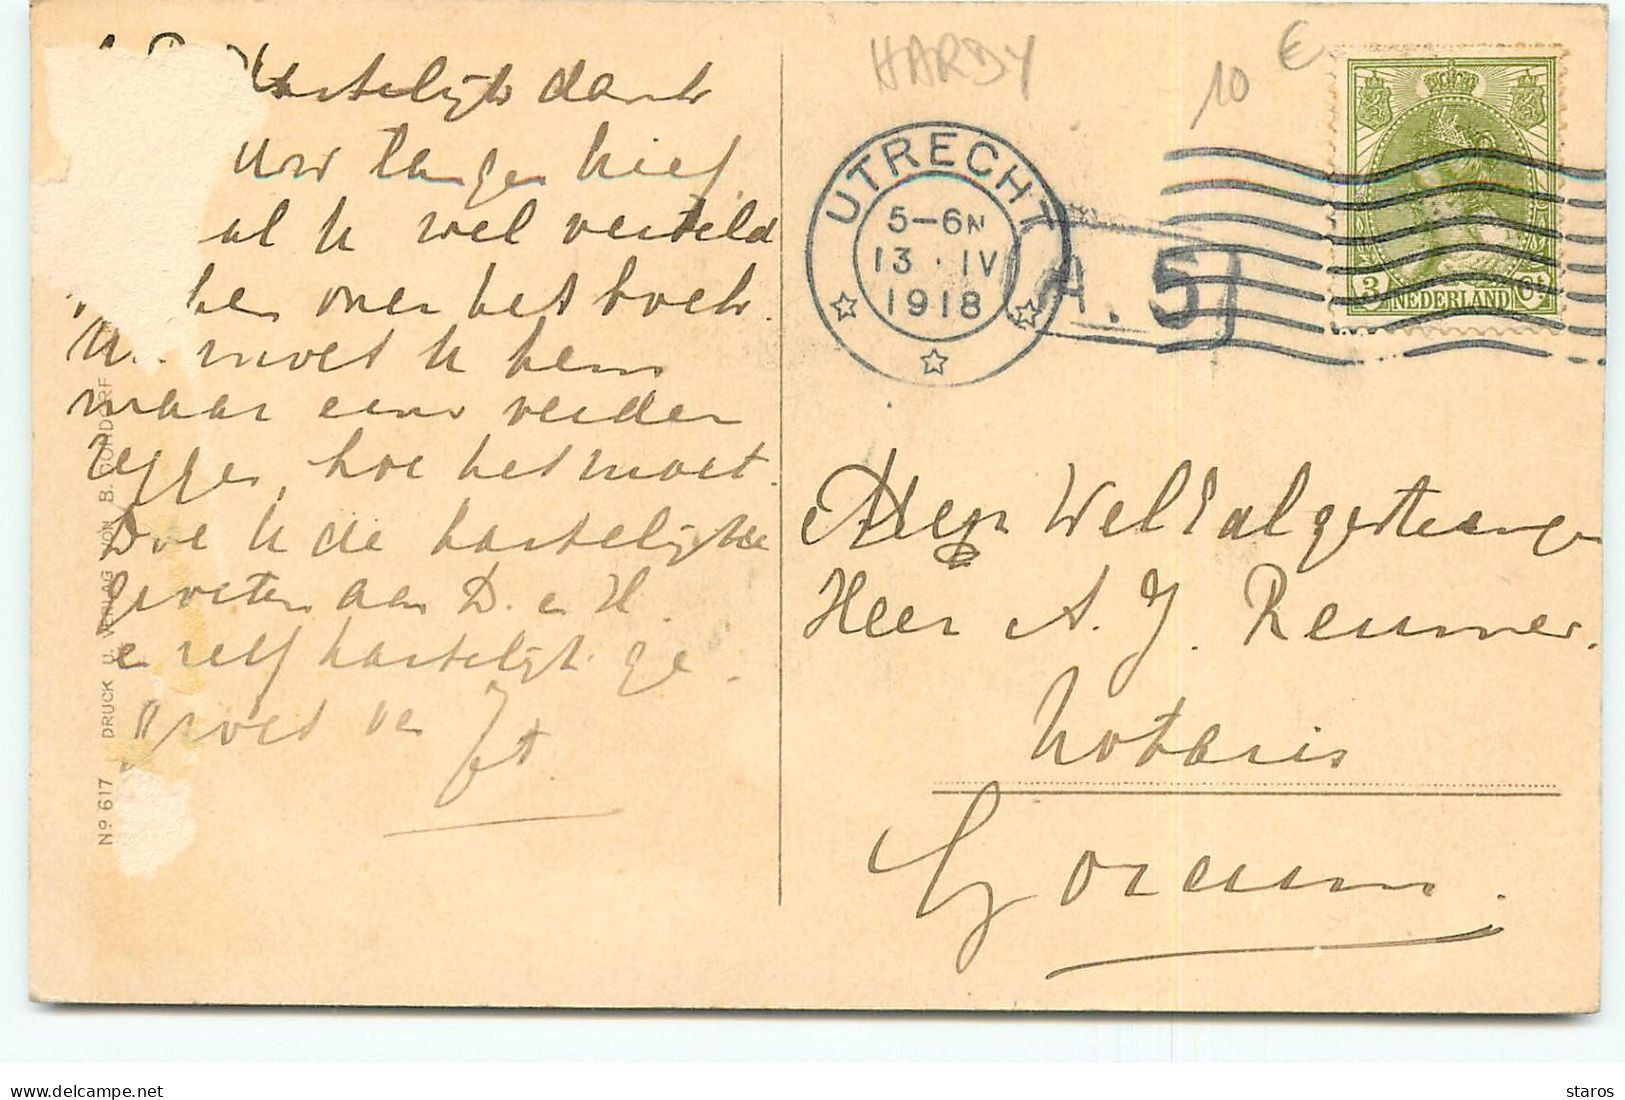 Hartelijk dank
uw lange brief.
al U wel verteld
hebben over het boek.
Nu moet U hem
maar eens verder
zeggen, hoe het moet.
Doe U de hartelijke
groeten aan D. en H.
en zelf hartelijk ge-
groet van
HARDY
10 €
UTRECHT
5-6N
13 · IV
1918
A. 5
3 NEDERLAND Ct
Den WelEdelgestrengen
Heer A. J. Reumer.
Notaris
Gorcum.
No 617 DRUCK U. VERLAG VON B. GONDORF
staros